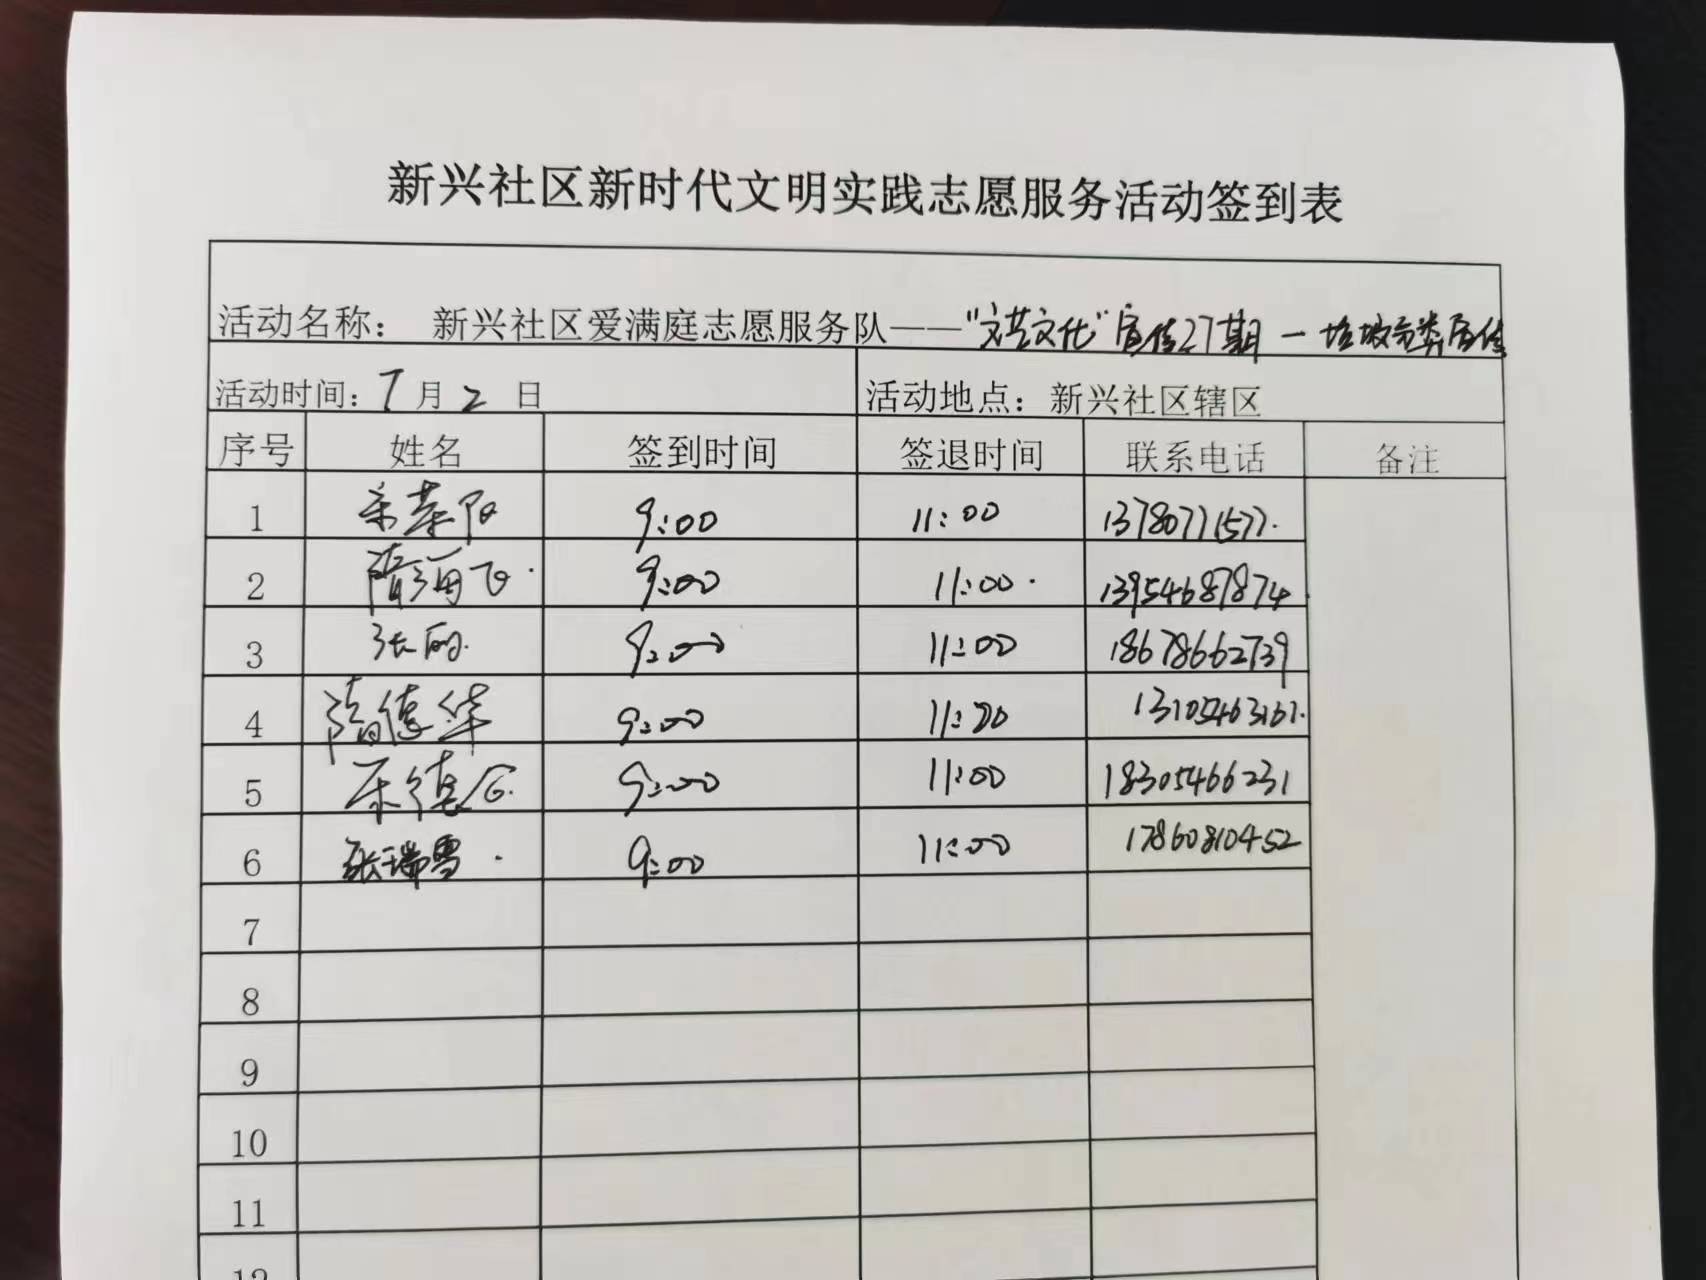 新兴社区新时代文明实践志愿服务活动签到表
活动名称： 新兴社区爱满庭志愿服务队——“文艺文化”宣传27期—垃圾分类宣传
活动时间：7月2日 活动地点：新兴社区辖区
序号 姓名 签到时间 签退时间 联系电话 备注
1 9:00 11:00 13780771577.
2 隋海飞. 9:00 11:00. 13954687874
3 张丽. 9:00 11:00 18678662739
4 隋德华 9:00 11:20 13105463161.
5 9:00 11:00 18305466231
6 张瑞雪. 9:00 11:00 17860810452
7
8
9
10
11
12